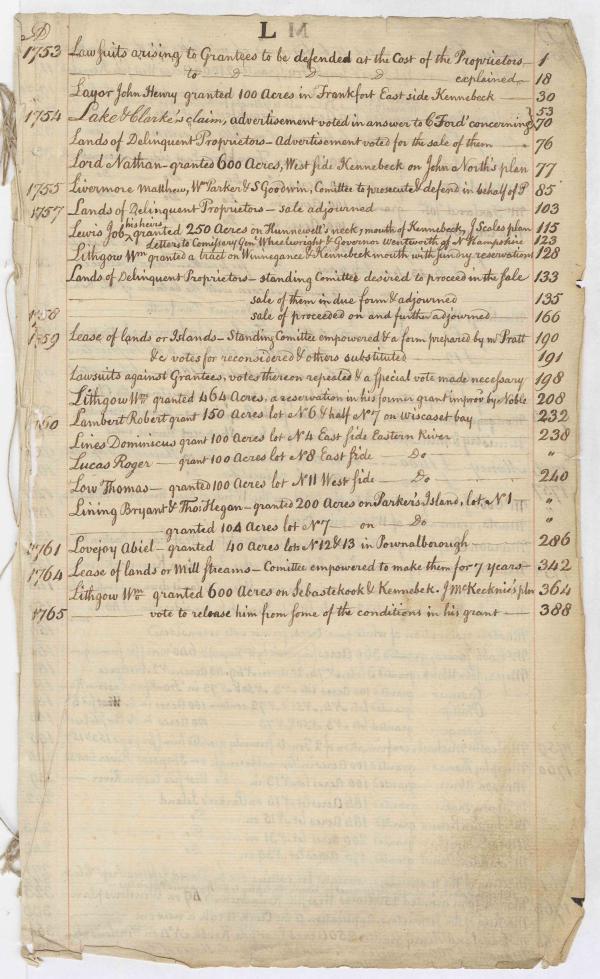 L M
AD
1753 Lawsuits arising to Grantees to be defended at the Cost of the Proprietors — 1
to d d d explained — 18
Layor John Henry granted 100 Acres in Frankfort East side Kennebeck — 30
53
1754 Lake & Clarke's claim, advertisement voted in answer to C Ford concerning 70
Lands of Delinquent Proprietors — Advertisement voted for the sale of them — 76
Lord Nathan — granted 600 Acres, West side Kennebeck on John North's plan 77
1755 Livermore Matthew, Wm Parker & S Goodwin, Comittee to prosecute & defend in behalf of P 85
1757 Lands of Delinquent Proprietors — sale adjourned 103
Lewis Job his heirs granted 250 Acres on Hunnewell's neck, mouth of Kennebeck, J Scales plan 115
Letters to Comissary Genl Wheelwright & Governor Wentworth of N Hampshire 123
Lithgow Wm granted a tract on Winnegance & Kennebeck mouth with sundry reservations 128
Lands of Delinquent Proprietors — standing Comittee desired to proceed in the sale 133
sale of them in due form & adjourned 135
1758 sale of proceeded on and further adjourned 166
1759 Lease of lands or Islands — Standing Comittee empowered & a form prepared by mr Pratt 190
&c votes for reconsidered & others substituted 191
Lawsuits against Grantees, votes thereon repealed & a special vote made necessary 198
Lithgow Wm granted 464 Acres, a reservation in his former grant improv'd by Noble 208
1760 Lambert Robert grant 150 Acres lot N 6 & half N 7 on Wiscaset bay 232
Lines Dominicus grant 100 Acres lot N 4 East side Eastern River 238
Lucas Roger — grant 100 Acres lot N 8 East side — Do — "
Low Thomas — granted 100 Acres lot N 11 West side — Do — 240
Lining Bryant & Thos Hegan — granted 200 Acres on Parker's Island, lot N 1 — "
granted 104 Acres lot N 7 — on — Do "
1761 Lovejoy Abiel — granted 40 Acres lots N 12 & 13 in Pownalborough — 286
1764 Lease of lands or Mill streams — Comittee empowered to make them for 7 years — 342
Lithgow Wm granted 600 Acres on Sebastekook & Kennebek. J McKecknie's plan 364
1765 — vote to release him from some of the conditions in his grant — 388